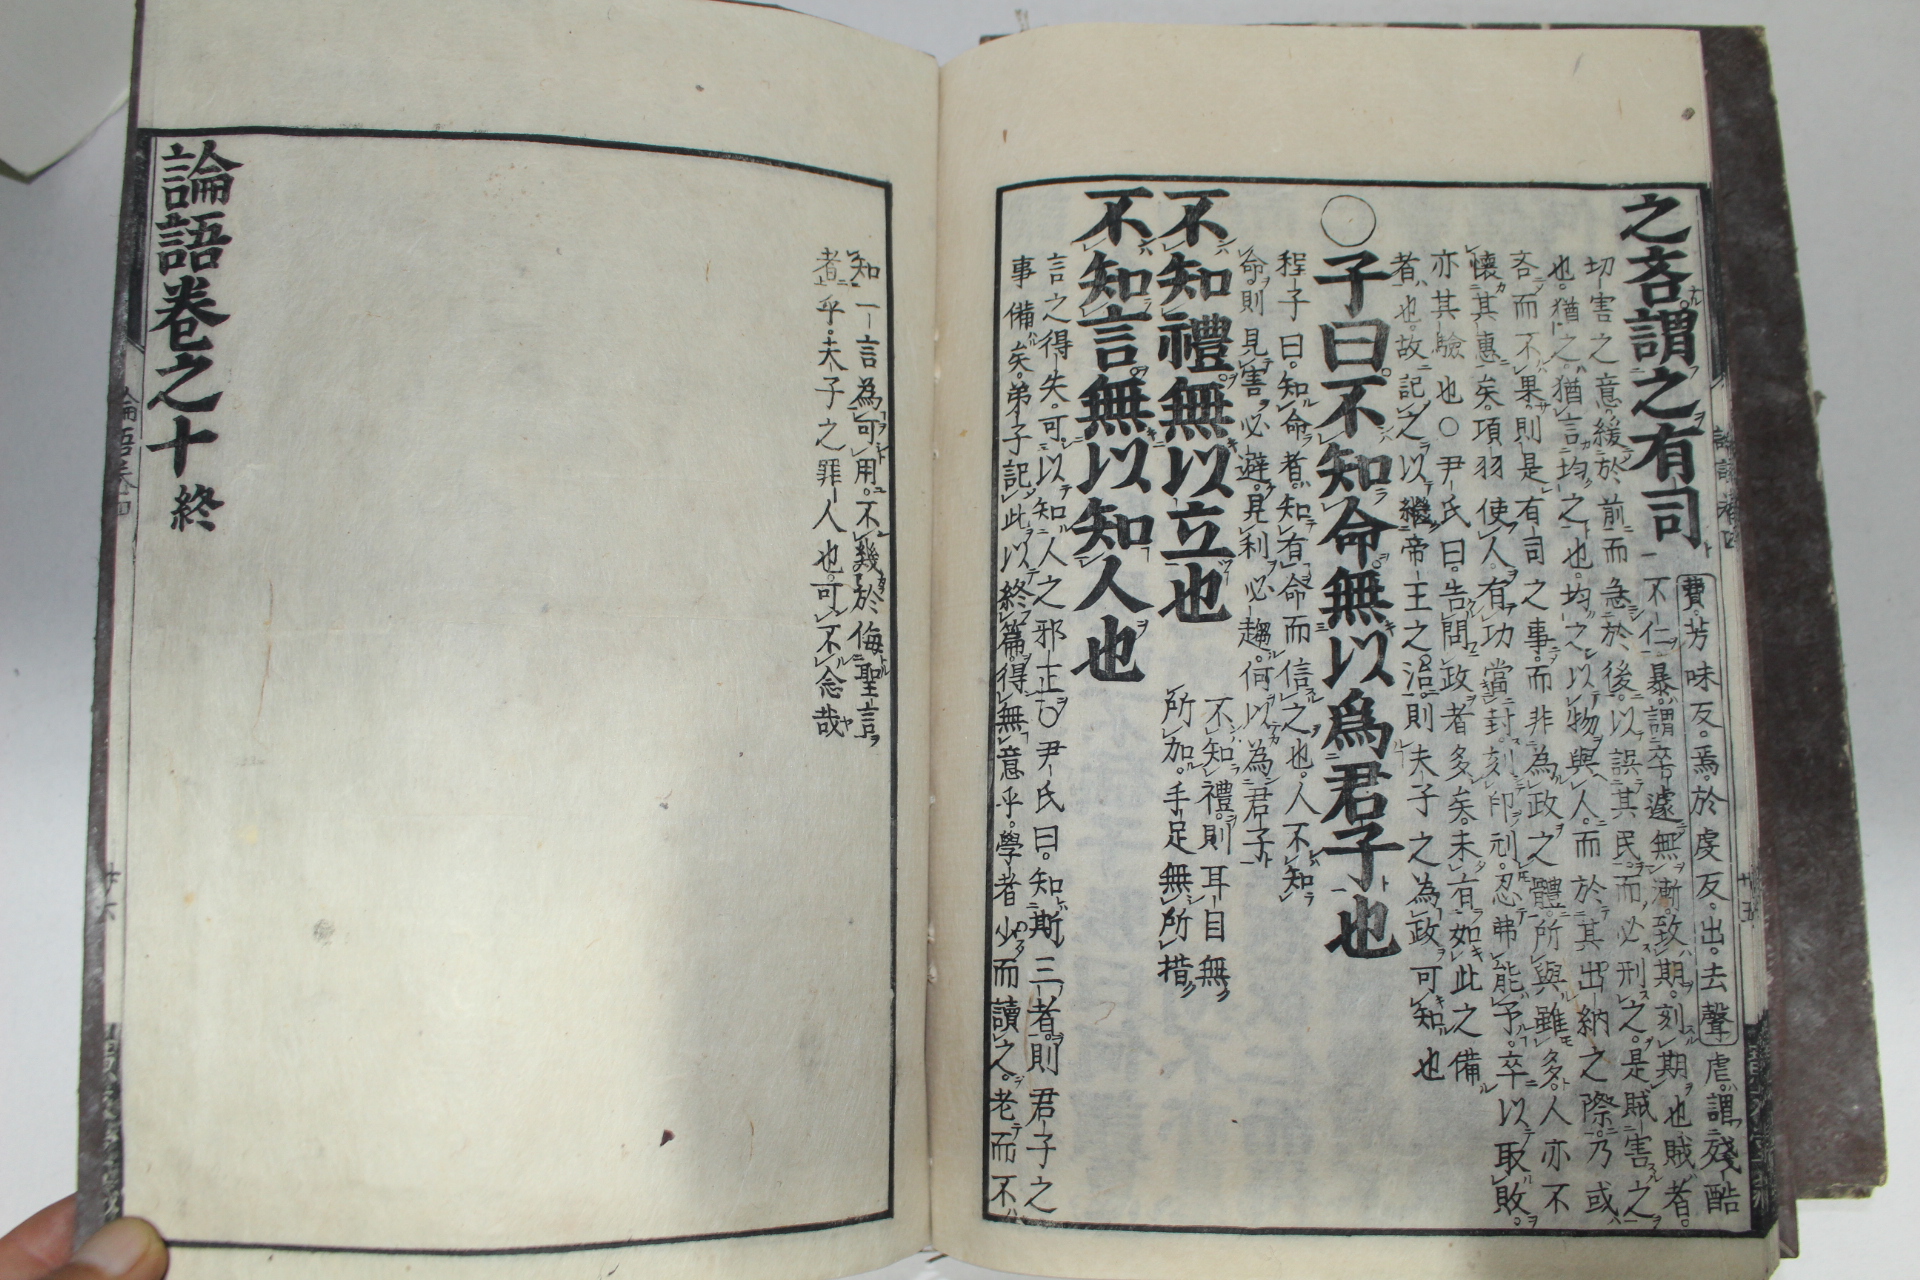 之吝謂之有司
費。芳味反。焉。於虔反。出。去聲 虐。謂殘酷
不仁。暴。謂卒遽無漸。致期。刻期也。賊者。
切害之意。緩於前而急於後。以誤其民。而必刑之。是賊害之
也。猶之。猶言均之也。均之以物與人。而於其出納之際。乃或
吝而不果。則是有司之事。而非為政之體。所與雖多。人亦不
懷其惠矣。項羽使人。有功當封。刻印刓。忍弗能予。卒以取敗。
亦其驗也○尹氏曰。告問政者多矣。未有如此之備
者也。故記之以繼帝王之治。則夫子之為政可知也
○子曰。不知命無以爲君子也
程子曰。知命者。知有命而信之也。人不知
命。則見害必避。見利必趨。何以為君子
不知禮。無以立也
不知禮。則耳目無
所加。手足無所措
不知言。無以知人也
言之得失。可以知人之邪正○尹氏曰。知斯三者。則君子之
事備矣。弟子記此以終篇。得無意乎。學者少而讀之。老而不
知一言為可用。不幾於侮聖言
者乎。夫子之罪人也。可不念哉
論語卷之十終